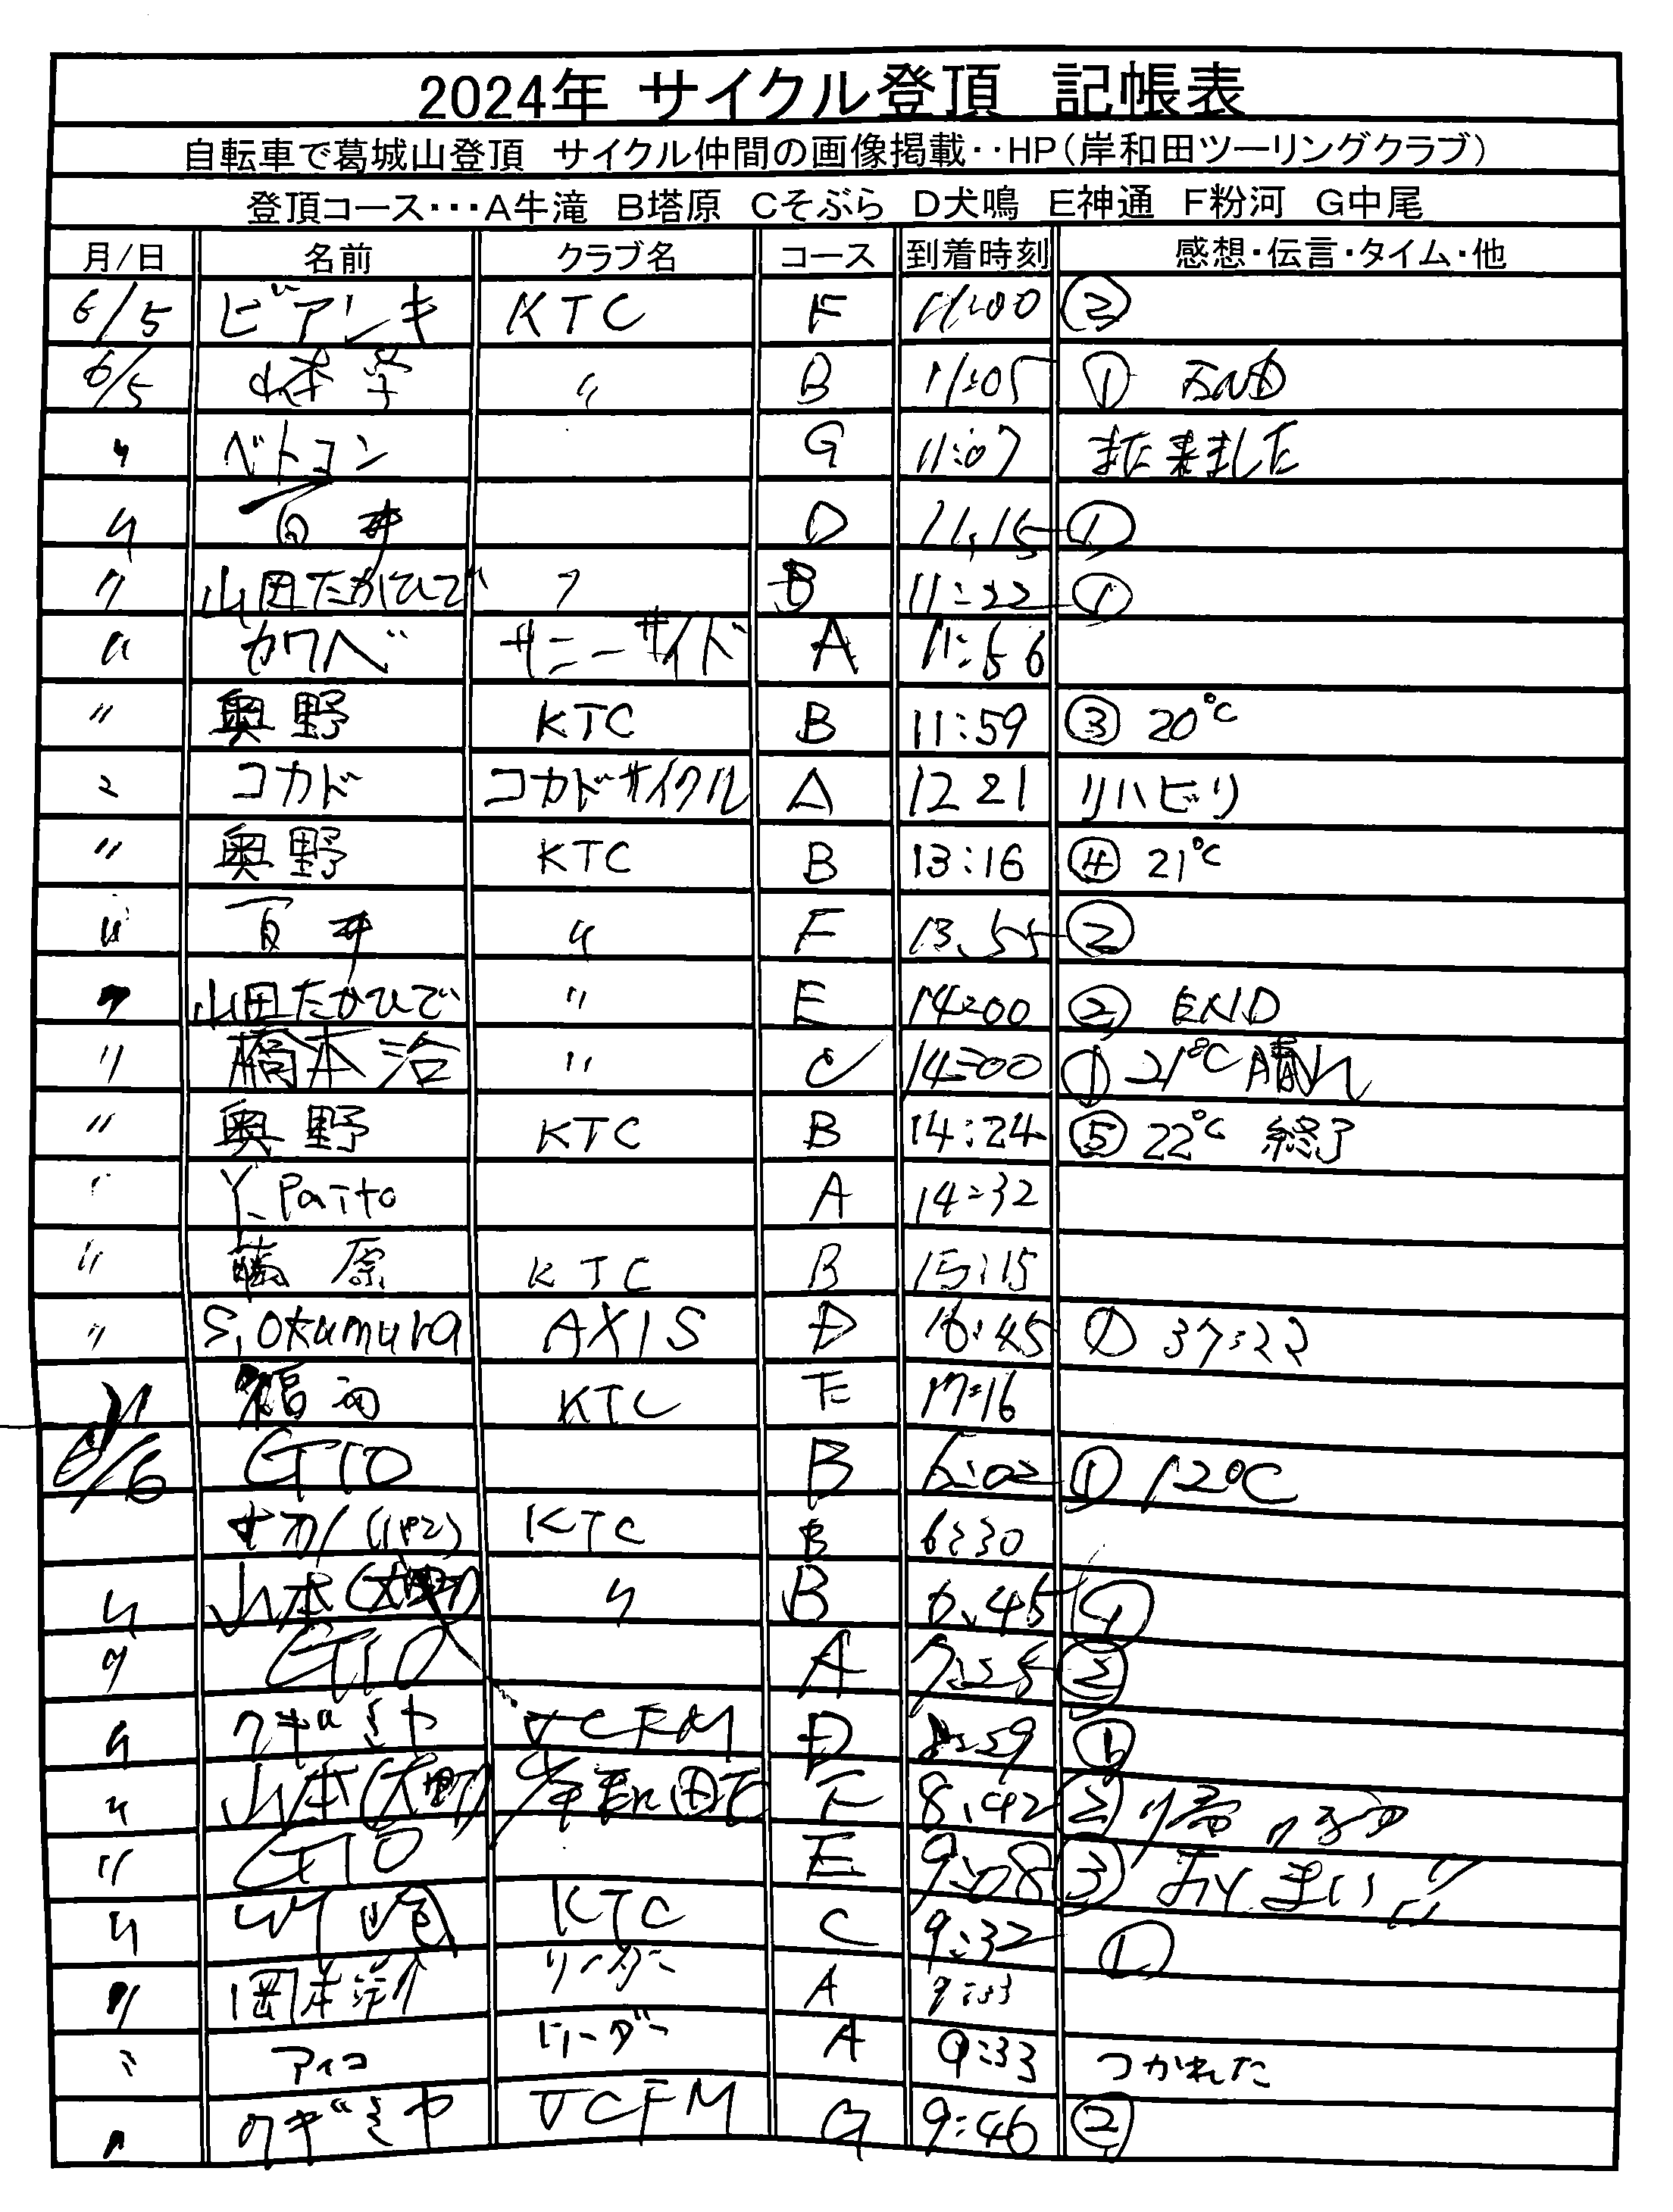 2024年 サイクル登頂 記帳表
自転車で葛城山登頂 サイクル仲間の画像掲載‥HP(岸和田ツーリングクラブ)
登頂コース・・・A牛滝 B塔原 Cそぶら D犬鳴 E神通 F粉河 G中尾
月/日 名前 クラブ名 コース 到着時刻 感想・伝言・タイム・他
6/5 ビアンキ KTC F 11:00 ②
6/5 山本学 〃 B 11:05 ①
〃 ベトコン G 11:07 また来ました
〃 百井 D 11,15 ①
〃 山田たかひで 〃 B 11:22 ①
〃 カワベ サニーサイド A 11:56
〃 奥野 KTC B 11:59 ③ 20℃
〃 コカド コカドサイクル A 12 21 リハビリ
〃 奥野 KTC B 13:16 ④ 21℃
〃 百井 〃 F 13,55 ②
〃 山田たかひで 〃 E 14:00 ② END
〃 橋本治 〃 C 14:00 ① 21℃ 晴れ
〃 奥野 KTC B 14:24 ⑤ 22℃ 終了
〃 Y. Paito A 14:32
〃 藤原 KTC B 15:15
〃 S,Okumura AXIS D 16:45 ① 37:22
〃 KTC E 17:16
6/6 GTO B 6:02 ① 12℃
KTC B 6:30
〃 山本(大町) 〃 B 6,45 ①
〃 GTO A 7:25 ②
〃 クギミヤ VCFM D ①
〃 山本(大町) 岸和田市 F 8,42 ②
〃 GTO E 9:08 ③ おしまい!!
〃 KTC C 9:32 ①
〃 岡本洋介 リーダー A 9:33
〃 アイコ リーダー A 9:33 つかれた
〃 クギミヤ VCFM G 9:46 ②